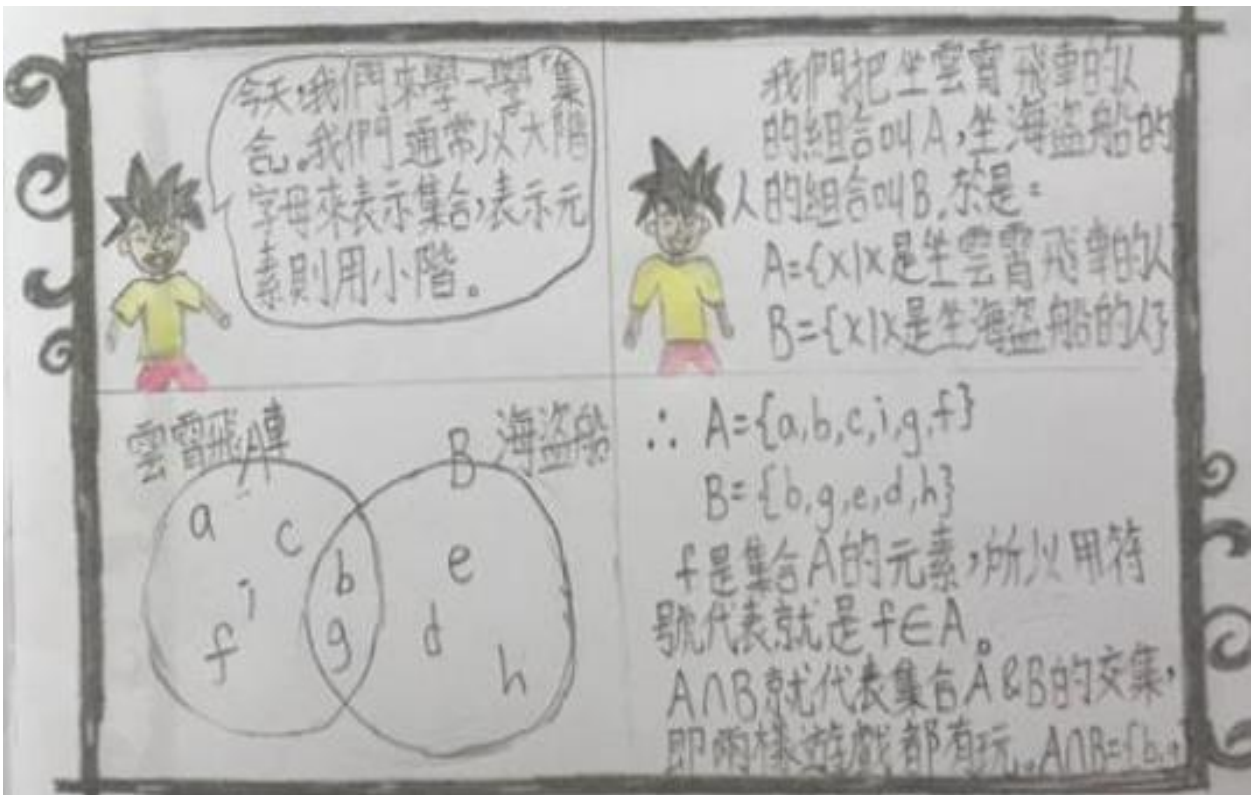 今天,我們來學一學「集
合」。我們通常以大階
字母來表示集合,表示元
素則用小階。
我們把坐雲霄飛車的人
的組合叫A,坐海盜船的
人的組合叫B.於是:
A={x|x是坐雲霄飛車的人
B={x|x是坐海盜船的人}
雲霄飛車
A
B 海盜船
a
c
b
e
i
f
g
d
h
∴ A={a,b,c,i,g,f}
B={b,g,e,d,h}
f是集合A的元素,所以用符
號代表就是f∈A。
A∩B就代表集合A&B的交集,
即兩樣遊戲都有玩。A∩B={b,g}